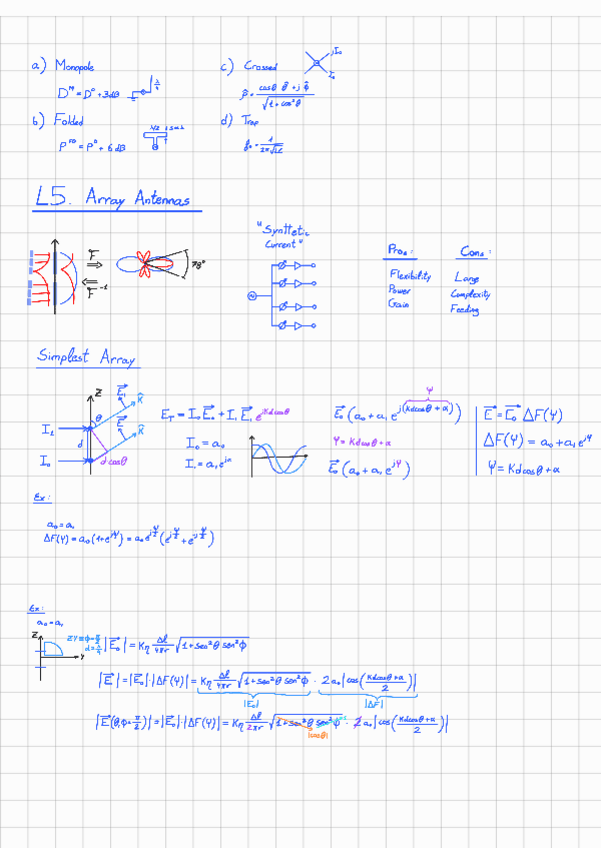 a) Monopole
D^M = D^D + 3dB
λ/4
b) Folded
λ/2
P^FD = P^D + 6 dB
c) Crossed
jI₀
I₀
d) Trap
L5. Array Antennas
F
F⁻¹
78°
"Synthetic
Current"
Pros:
Flexibility
Power
Gain
Cons:
Large
Complexity
Feeding
Simplest Array
Z
I₁
I₀
d
θ
d cosθ
E_T = I₀E₀ + I₁E₁ e^jkdcosθ
I₀ = a₀
I₁ = a₁e^jα
E₀(a₀ + a₁ e^j(kdcosθ + α))
Ψ
Ψ = kdcosθ + α
E₀(a₀ + a₁ e^jΨ)
E = E₀ ΔF(Ψ)
ΔF(Ψ) = a₀ + a₁e^jΨ
Ψ = kdcosθ + α
Ex:
a₀ = a₁
ΔF(Ψ) = a₀(1+e^jΨ) = a₀e^jΨ/2(e^jΨ/2 + e^-jΨ/2)
Ex:
a₀ = a₁
Z
Y
ZY ≡ ϕ = π/2
|E₀| = Kη Δl/4πr √(1+sen²θ sen²ϕ)
|E| = |E₀|·|ΔF(Ψ)| = Kη Δl/4πr √(1+sen²θ sen²ϕ) · 2a₀|cos((kdcosθ+α)/2)|
|E₀|
|ΔF|
|E(θ,ϕ=π/2)| = |E₀|·|ΔF(Ψ)| = Kη Δl/2πr √(1+sen²θ sen²ϕ) · 2a₀|cos((kdcosθ+α)/2)|
|cosθ|